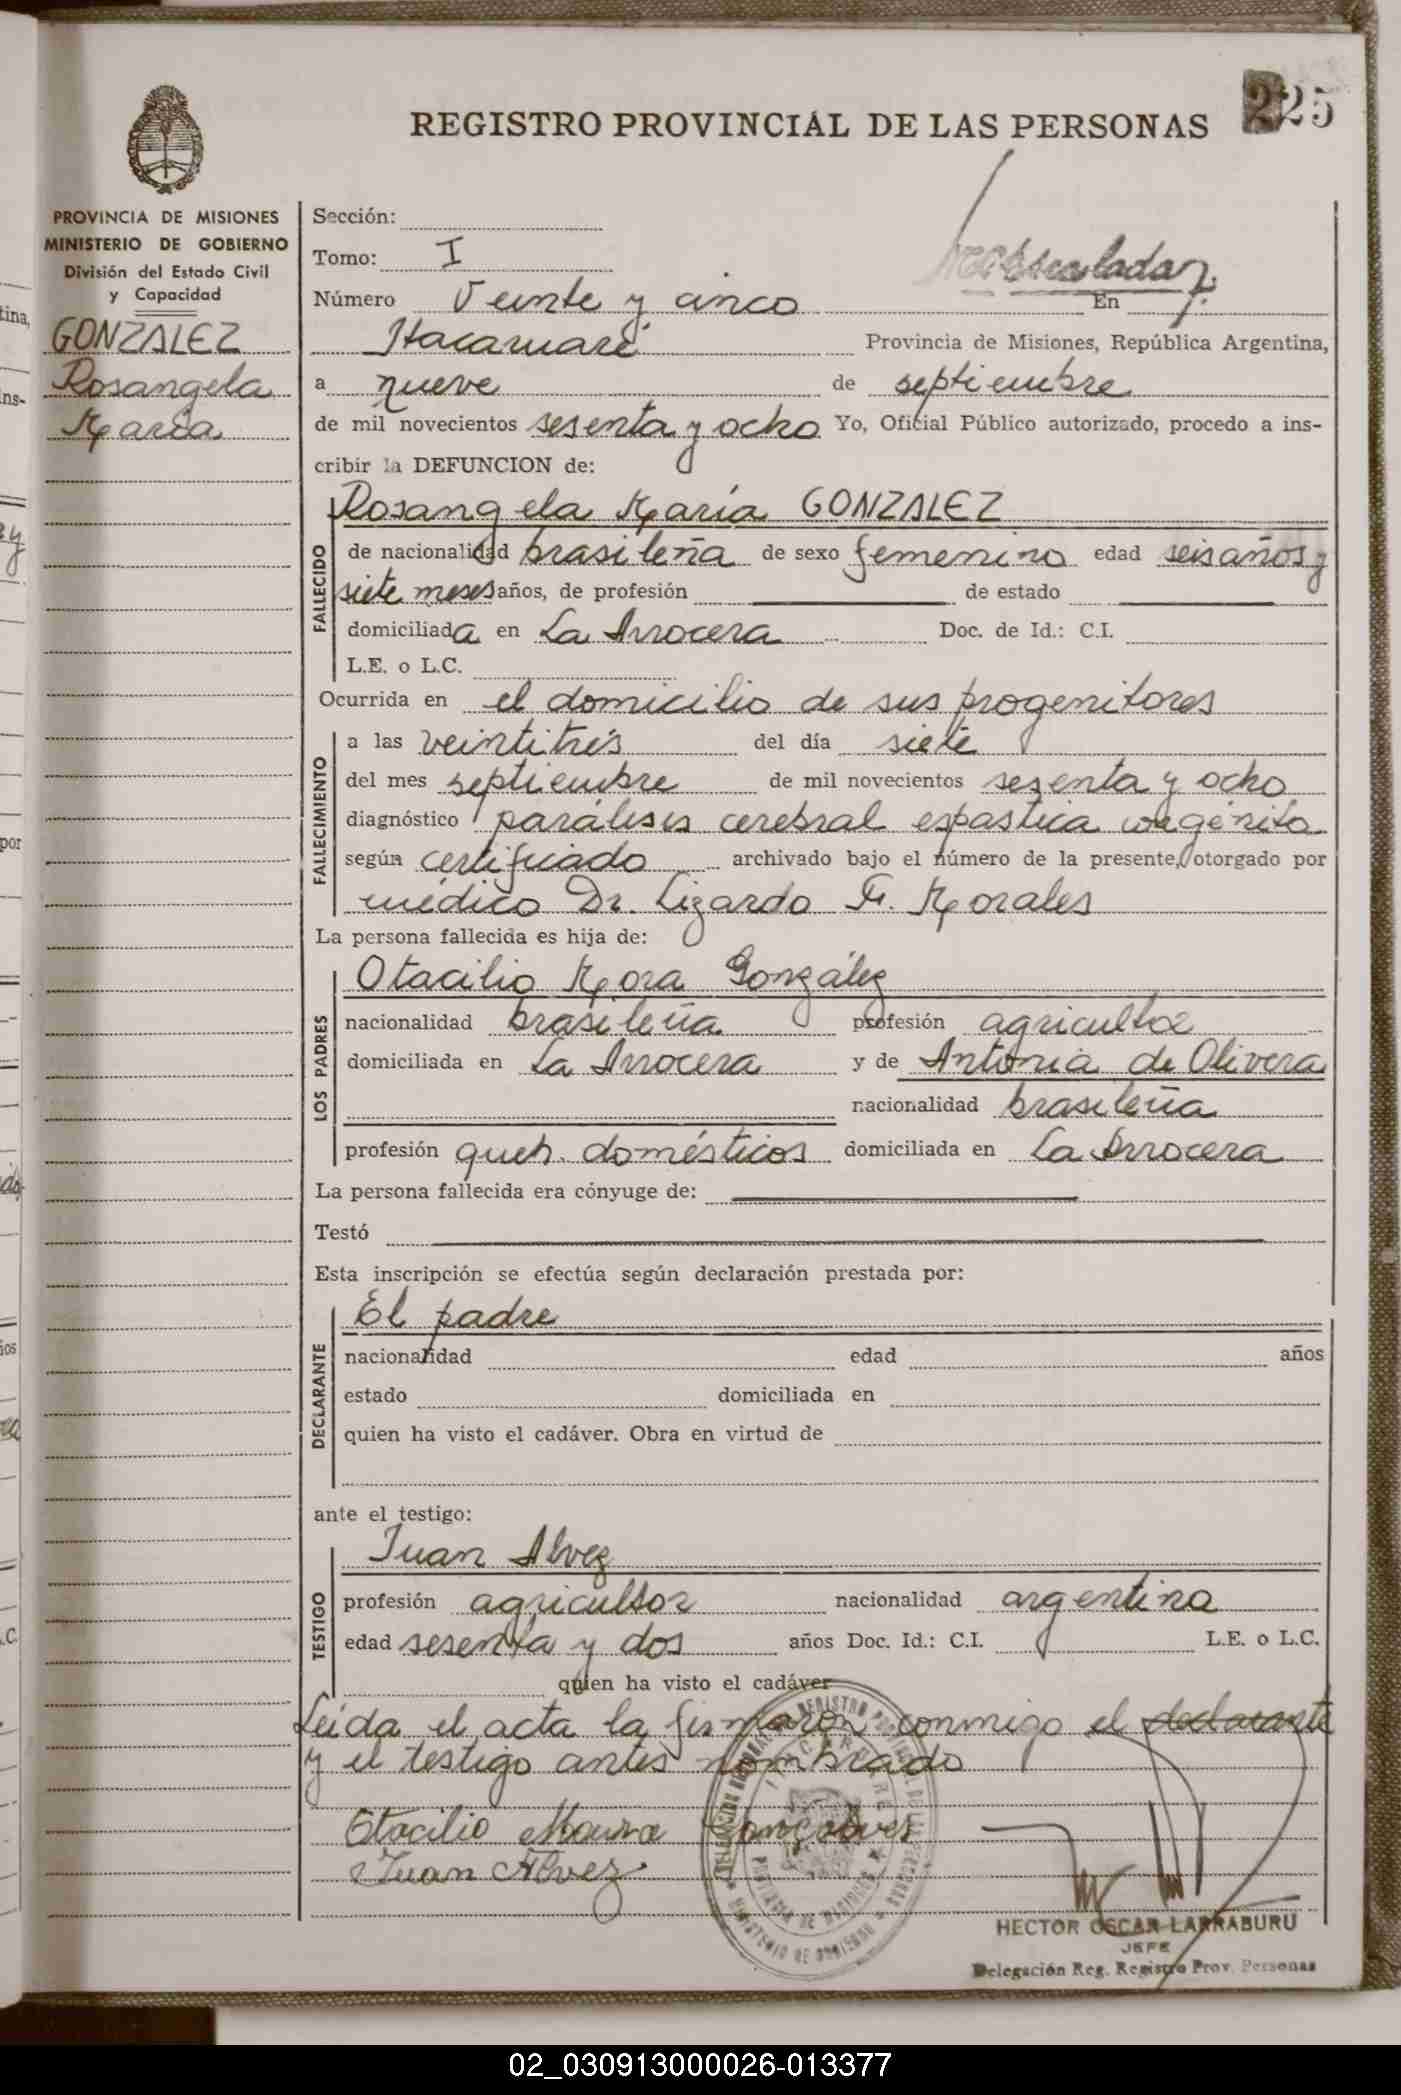 225
REGISTRO PROVINCIAL DE LAS PERSONAS
PROVINCIA DE MISIONES
MINISTERIO DE GOBIERNO
División del Estado Civil
y Capacidad
GONZALEZ
Rosangela
María
Sección:
Tomo: I
Número Veinte y cinco En
Itacaruaré Provincia de Misiones, República Argentina,
a nueve de septiembre
de mil novecientos sesenta y ocho Yo, Oficial Público autorizado, procedo a ins-
cribir la DEFUNCION de:
Rosangela María GONZALEZ
FALLECIDO
de nacionalidad brasileña de sexo femenino edad seis años y
siete meses años, de profesión de estado
domiciliada en La Arrocera Doc. de Id.: C.I.
L.E. o L.C.
Ocurrida en el domicilio de sus progenitores
FALLECIMIENTO
a las veintitrés del día siete
del mes septiembre de mil novecientos sesenta y ocho
diagnóstico parálisis cerebral espástica congénita
según certificado archivado bajo el número de la presente, otorgado por
médico Dr. Lizardo F. Morales
La persona fallecida es hija de:
LOS PADRES
Otacilio Mora González
nacionalidad brasileña profesión agricultor
domiciliada en La Arrocera y de Antonia de Olivera
nacionalidad brasileña
profesión queh. domésticos domiciliada en La Arrocera
La persona fallecida era cónyuge de:
Testó
Esta inscripción se efectúa según declaración prestada por:
DECLARANTE
El padre
nacionalidad edad años
estado domiciliada en
quien ha visto el cadáver. Obra en virtud de
ante el testigo:
TESTIGO
Juan Alvez
profesión agricultor nacionalidad argentina
edad sesenta y dos años Doc. Id.: C.I. L.E. o L.C.
quien ha visto el cadáver
Leída el acta la firmaron conmigo el declarante
y el testigo antes nombrado
Otacilio Moura Gonçalves
Juan Alvez
HECTOR OSCAR LARRABURU
JEFE
Delegación Reg. Registro Prov. Personas
02_030913000026-013377